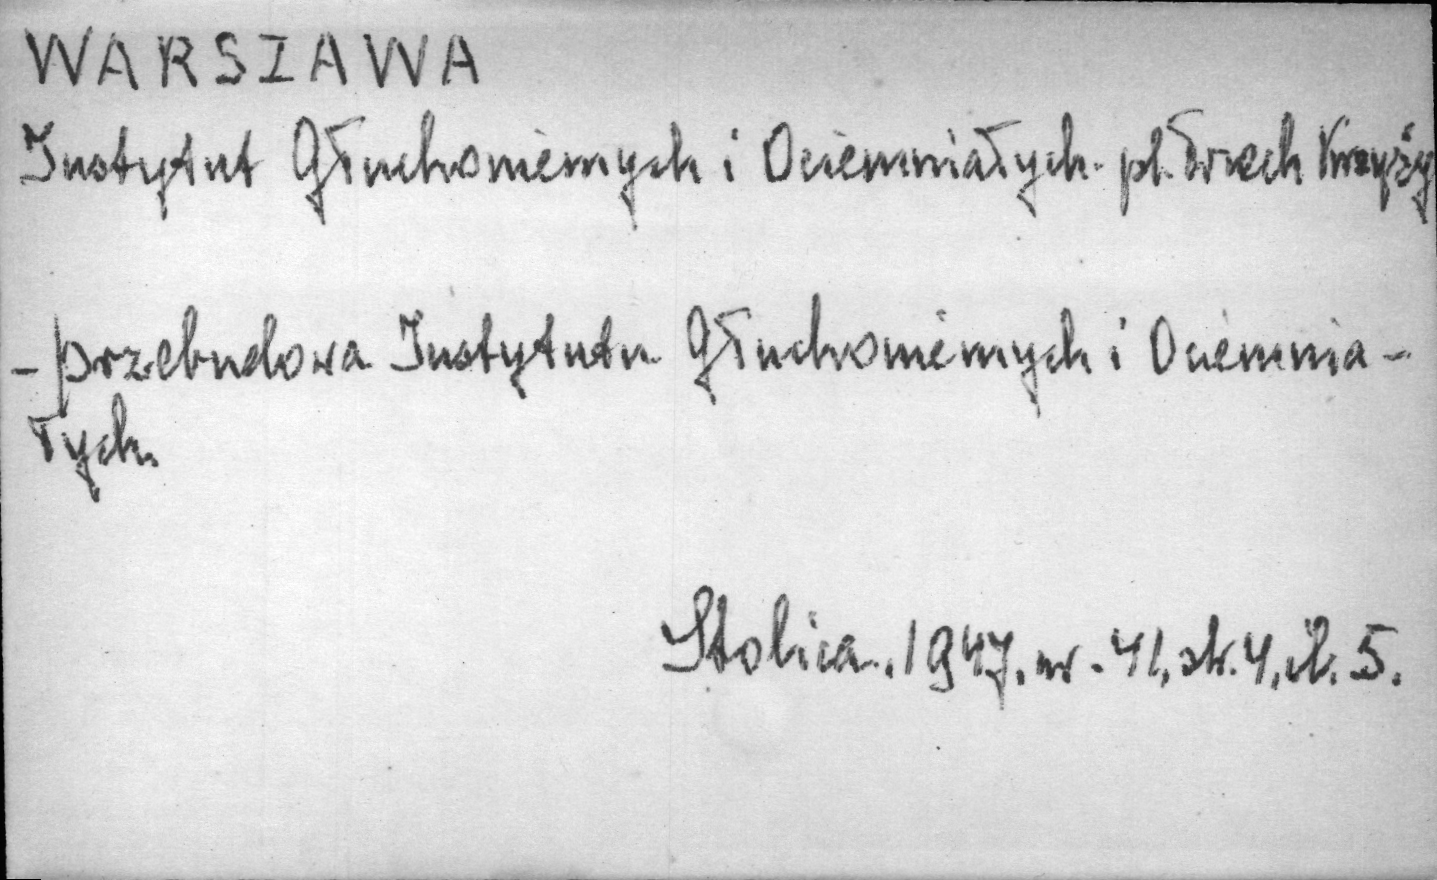 WARSZAWA
Instytut Głuchoniemych i Ociemniałych. pl. Trzech Krzyży
- przebudowa Instytutu Głuchoniemych i Ociemnia-
łych.
Stolica. 1947. nr. 41, str. 4, il. 5.